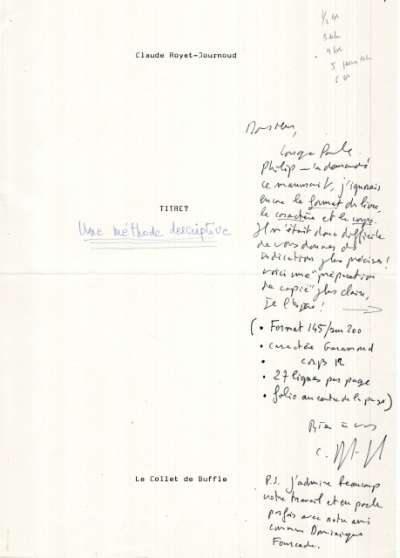 Claude Royet-Journoud
Monsieur,
Lorsque Paule
Philip — a demandé
ce manuscrit, j'ignorais
encore le format du livre,
le caractère et le corps.
Il m'était donc difficile
de vous donner des
indications plus précises !
voici une "préparation
de copie" plus claire,
Je l'espère !
TITRE?
Une méthode descriptive
( • Format 145/sur 200
• caractère Garamond
• corps 12
• 27 lignes par page
• folio au centre de la page )
Bien à vous
C.
Le Collet de Buffle
P.S. j'admire beaucoup
votre travail et en parle
parfois avec notre ami
commun Dominique
Fourcade.